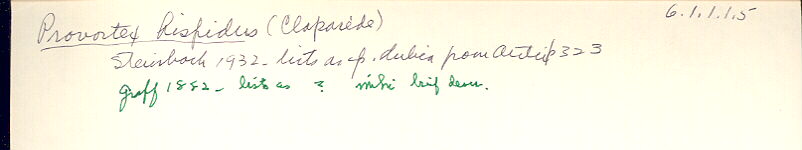 Provortex hispidus (Claparède) 6.1.1.1.5
Steinbock 1932 - lists as sp. dubia from Arctic p 323
Graff 1882 - lists as ? brief descr.